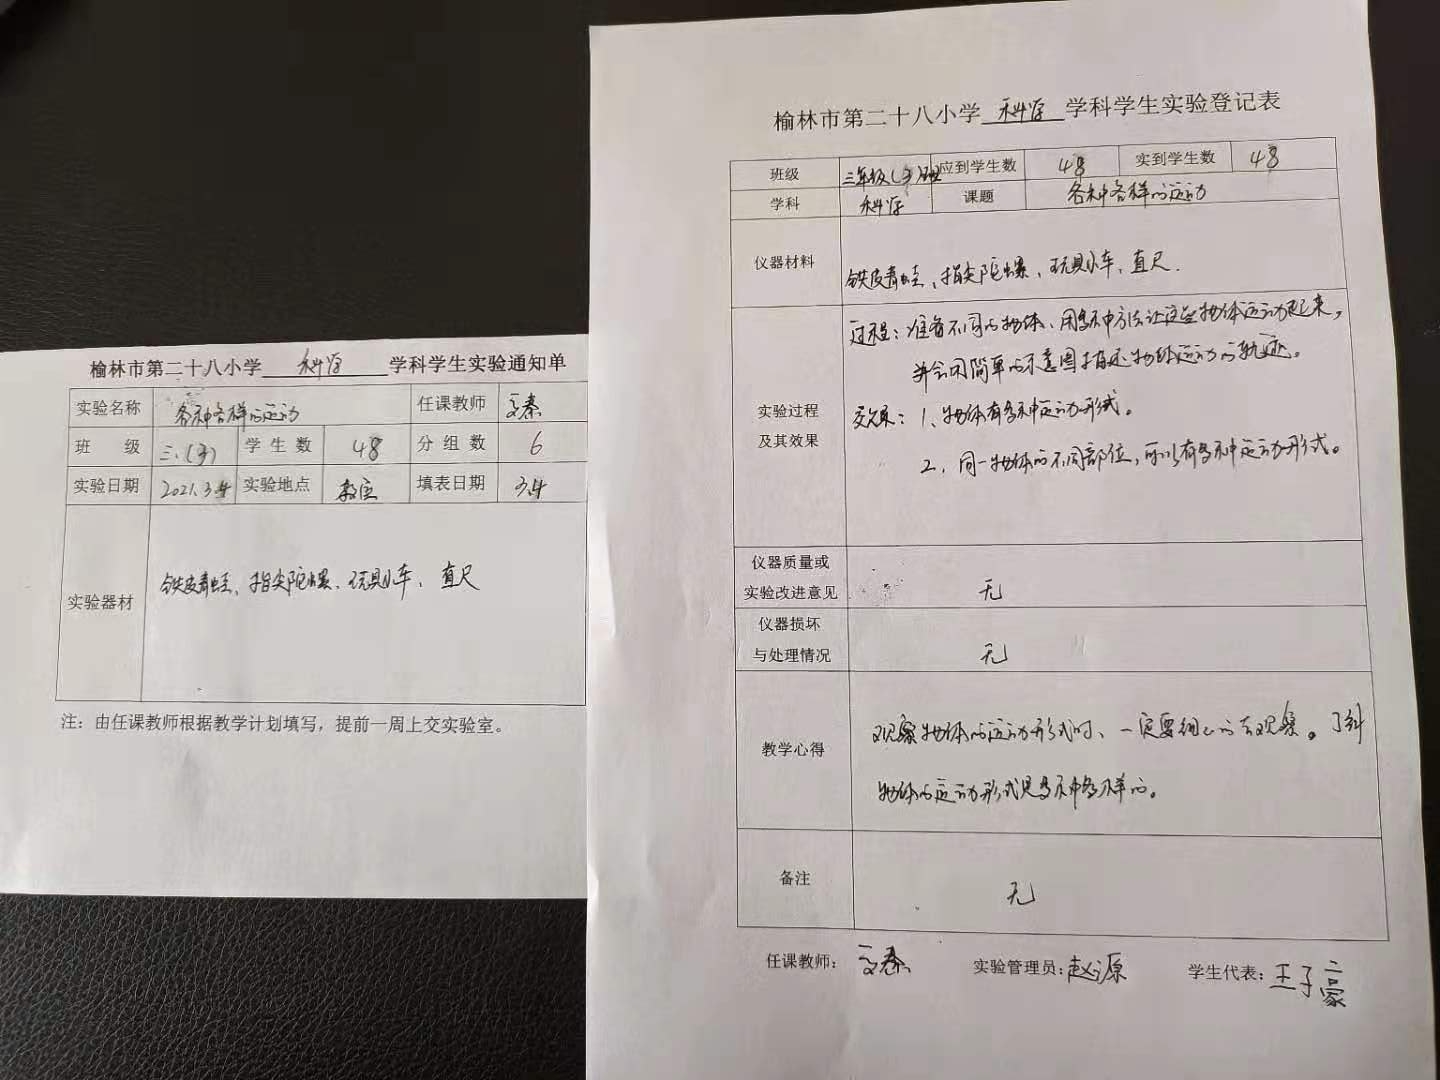 榆林市第二十八小学 科学 学科学生实验通知单
实验名称 各种各样的运动 任课教师
班 级 三.(3) 学生数 48 分组数 6
实验日期 2021.3.4 实验地点 教室 填表日期 3.4
实验器材 铁皮青蛙、指尖陀螺、玩具小车、直尺
注：由任课教师根据教学计划填写，提前一周上交实验室。
榆林市第二十八小学 科学 学科学生实验登记表
班级 三年级(3)班 应到学生数 48 实到学生数 48
学科 科学 课题 各种各样的运动
仪器材料 铁皮青蛙、指尖陀螺、玩具小车、直尺.
实验过程
及其效果
过程：准备不同的物体、用多种方法让这些物体运动起来，
并会用简单的示意图描述物体运动的轨迹。
效果：1、物体有多种运动形式。
2、同一物体的不同部位，可以有多种运动形式。
仪器质量或
实验改进意见 无
仪器损坏
与处理情况 无
教学心得
观察物体的运动形式时、一定要细心的去观察。了解
物体的运动形式是多种多样的。
备注 无
任课教师： 实验管理员：赵源 学生代表：王子豪